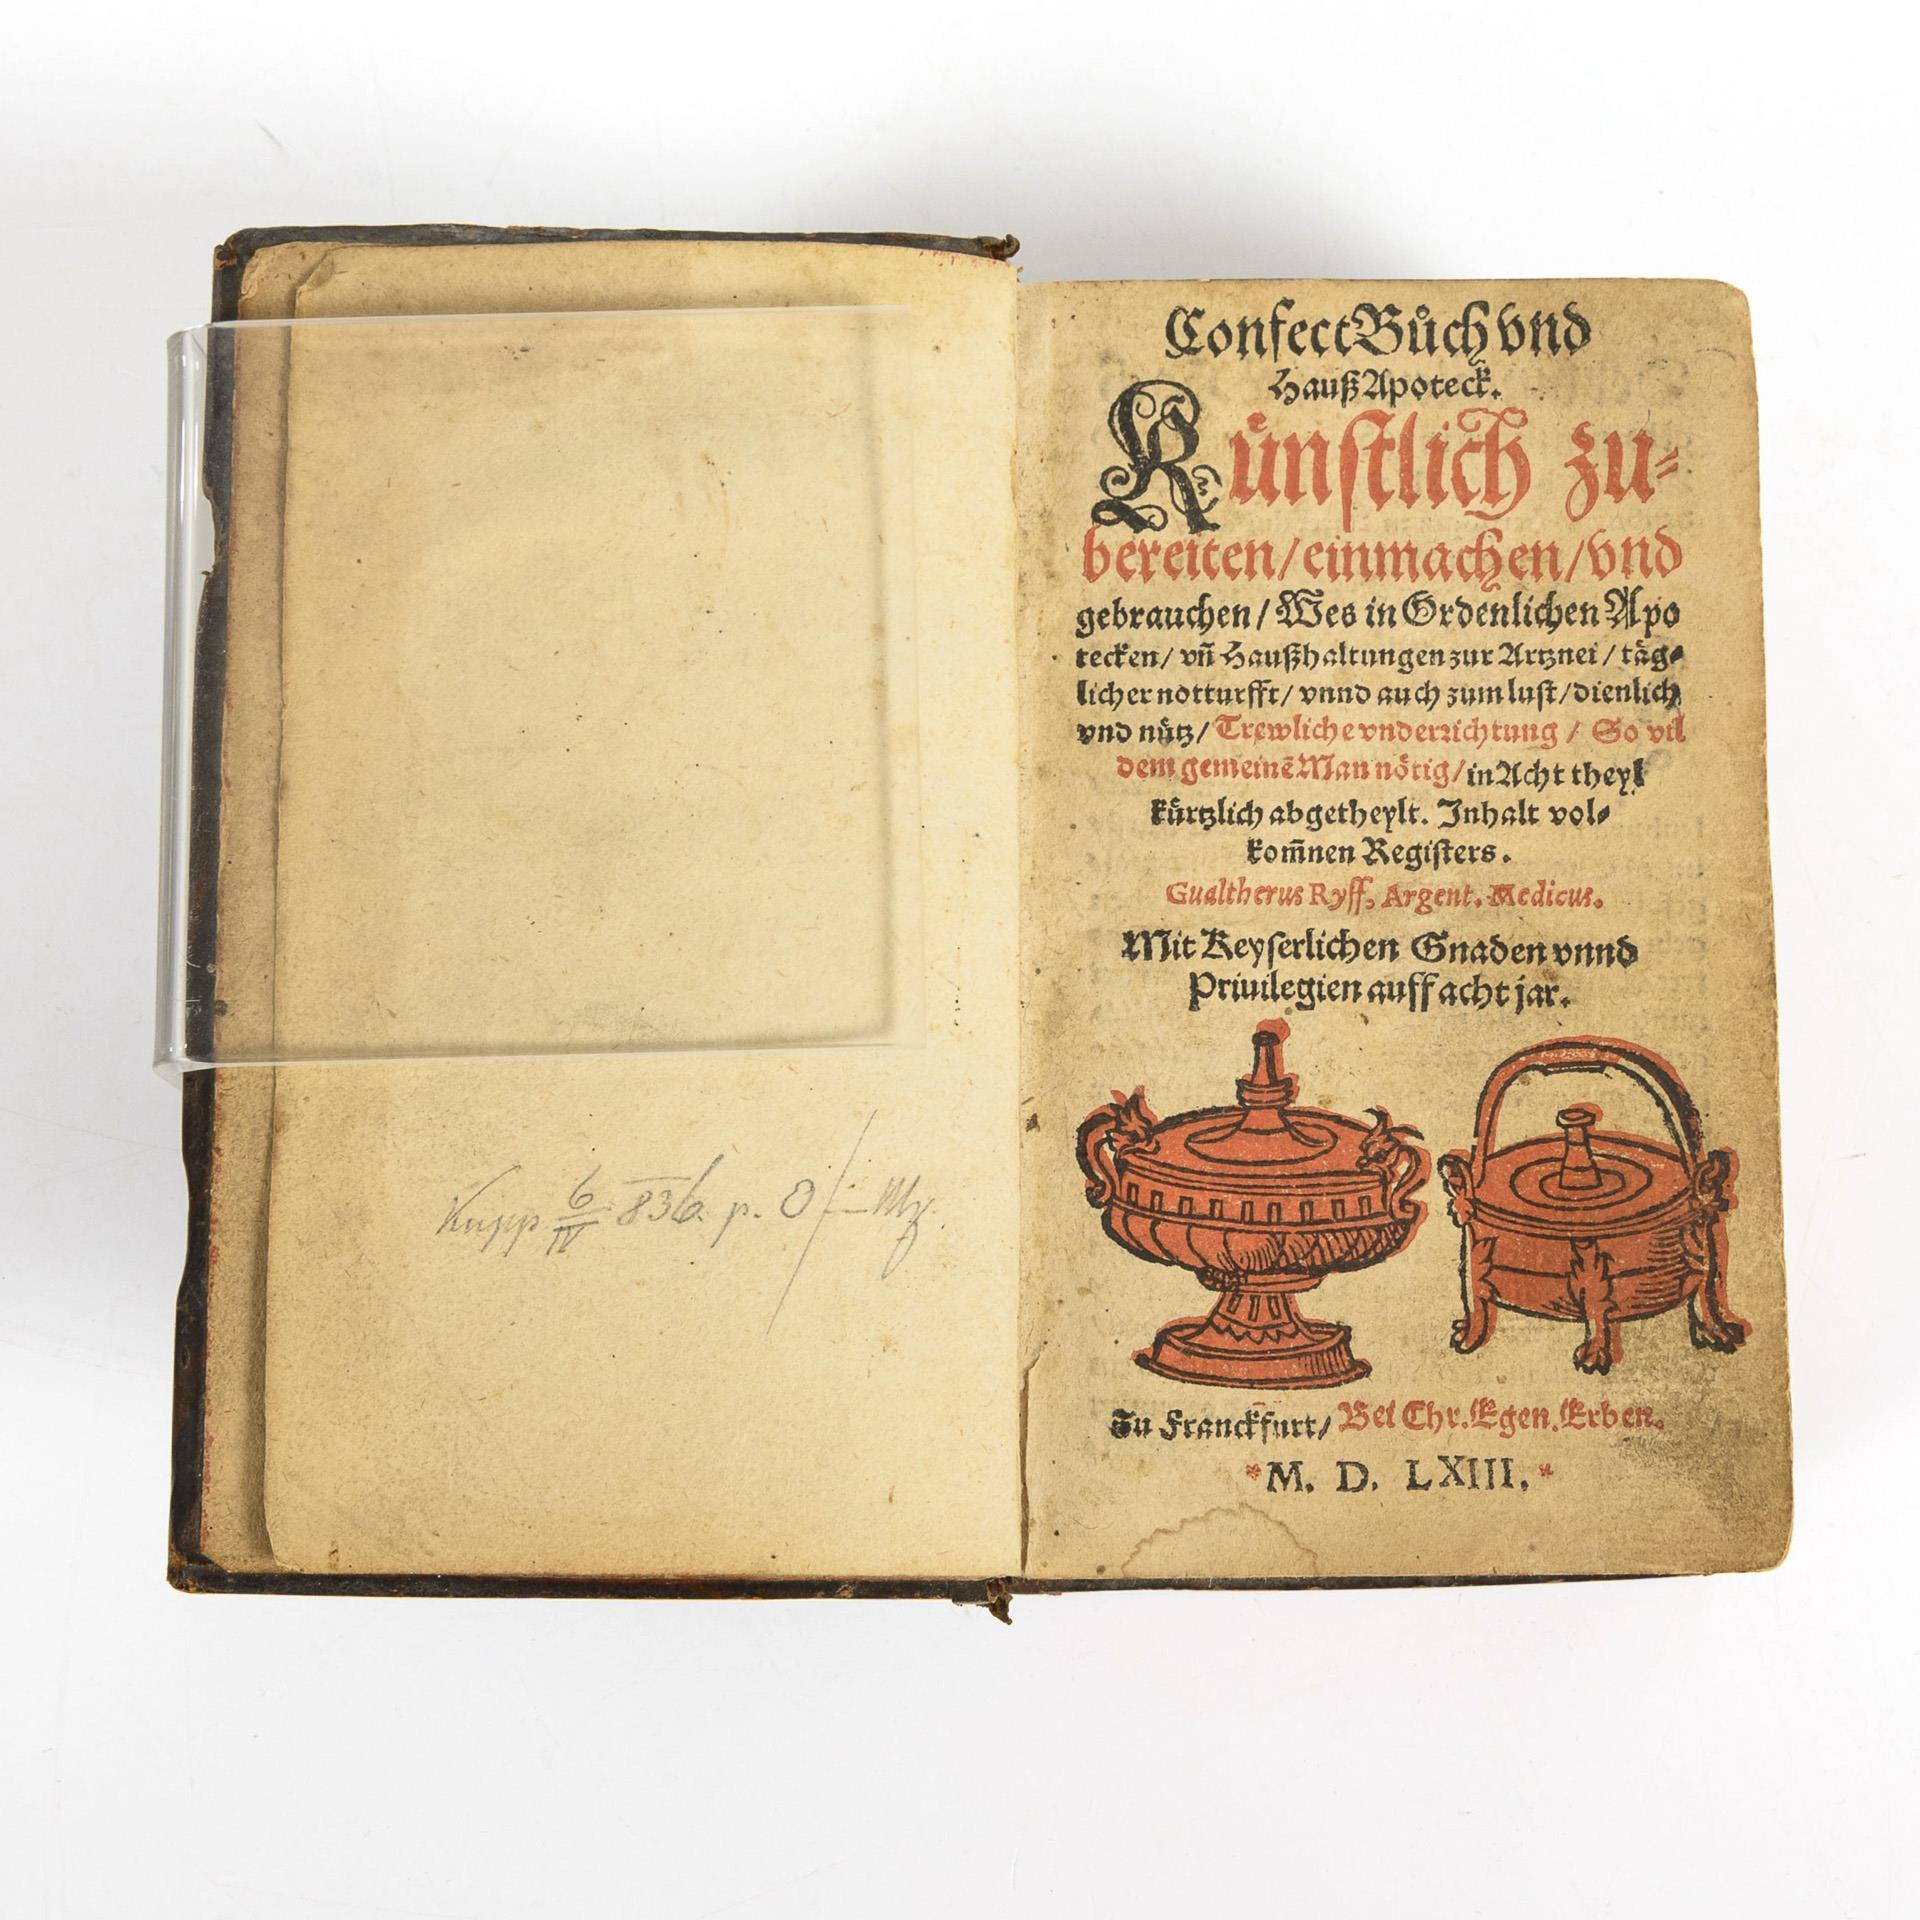 Kupp. 6/IV 836. p.
Confect Bůch vnd
Hauß Apoteck.
Künstlich zu⸗
bereiten / einmachen / vnd
gebrauchen / Wes in Ordenlichen Apo
tecken / vñ Haußhaltungen zur Artznei / täg⸗
licher notturfft / vnnd auch zum lust / dienlich
vnd nütz / Trewliche vnderrichtung / So vil
dem gemeinē Man nötig / in Acht theyl
kürtzlich abgetheylt. Inhalt vol⸗
kom̄nen Registers.
Gualtherus Ryff, Argent. Medicus.
Mit Keyserlichen Gnaden vnnd
Priuilegien auff acht jar.
Zu Franckfurt / Bei Chr. Egen. Erben.
* M. D. LXIII. *